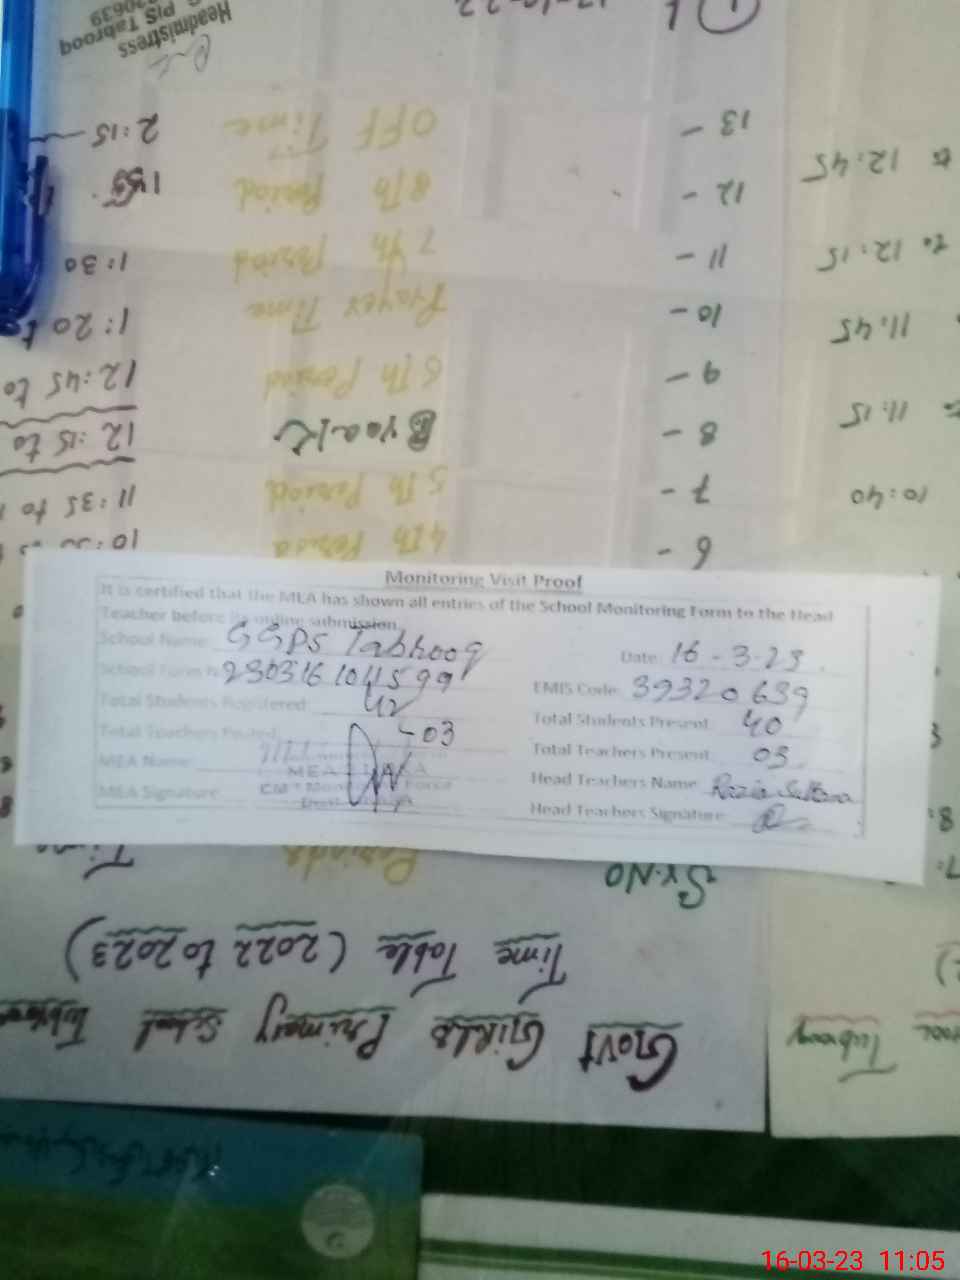 Monitoring Visit Proof
It is certified that the MEA has shown all entries of the School Monitoring Form to the Head
Teacher before its online submission.
School Name: GGPS Tabroog
Date: 16-3-23
School Form 230316104599
EMIS Code: 39320639
Total Students Registered: 42
Total Students Present: 40
Total Teachers Posted: 03
Total Teachers Present: 03
MEA Name:
Head Teachers Name: Razia Sultana
MEA Signature
Head Teachers Signature:
Govt Girls Primary School
Time Table (2022 to 2023)
Sr.No Periods Time
6 - 4th Period
7 - 5th Period 11:35 to
8 - Break 12:15 to
9 - 6th Period 12:45 to
10 - Prayer Time 1:20 to
11 - 7th Period 1:30
12 - 8th Period 1:55
13 - OFF Time 2:15
Headmistress
PIS Tabrooq
10:40
11:15
11:45
to 12:15
to 12:45
16-03-23 11:05